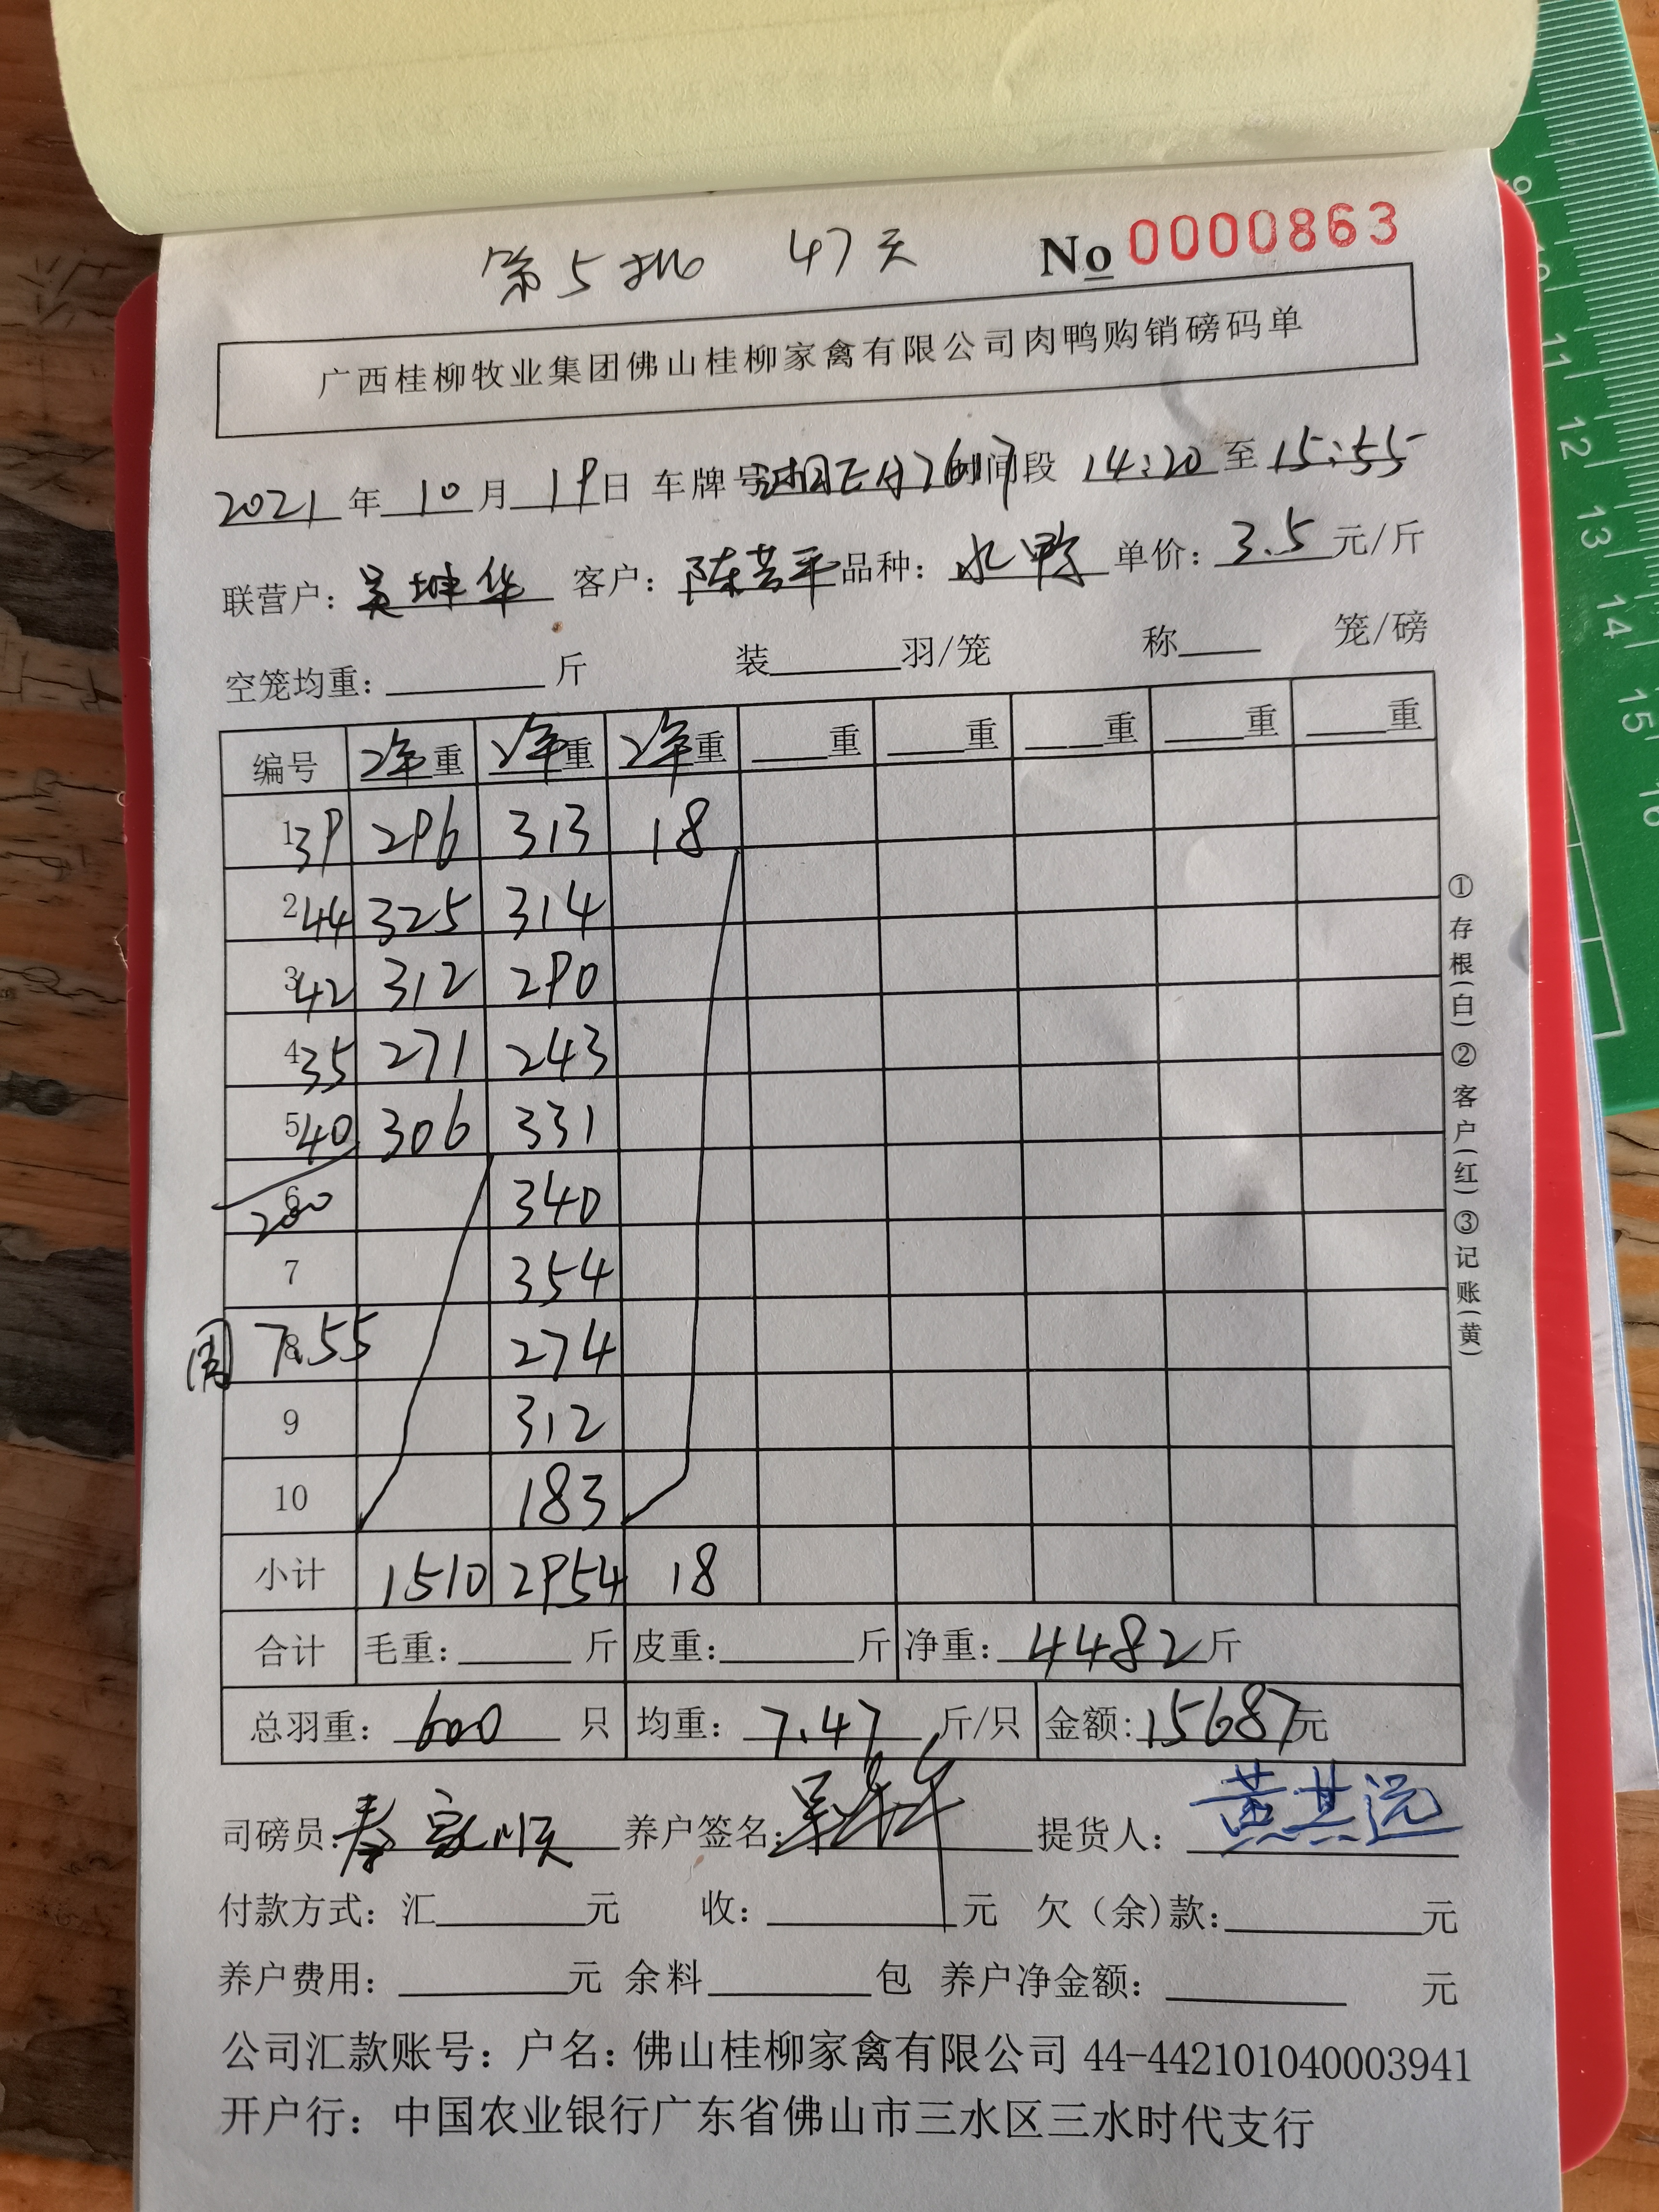 第5批 47天 No 0000863
广西桂柳牧业集团佛山桂柳家禽有限公司肉鸭购销磅码单
2021年10月19日 车牌号 时间段 14:20至15:55
联营户：吴坤华 客户：陈芸平 品种：水鸭 单价：3.5元/斤
空笼均重：斤 装羽/笼 称笼/磅
编号 净重 净重 净重 重 重 重 重 重
1 39 296 313 18
2 44 325 314
3 42 312 290
4 35 271 243
5 40 306 331
6 200 340
7 354
8 7.55 274
9 312
10 183
小计 1510 2954 18
合计 毛重：斤 皮重：斤 净重：4482斤
总羽重：600只 均重：7.47斤/只 金额：15687元
司磅员： 养户签名： 提货人：黄其远
付款方式：汇元 收：元 欠（余)款：元
养户费用：元 余料包 养户净金额：元
公司汇款账号：户名：佛山桂柳家禽有限公司 44-442101040003941
开户行：中国农业银行广东省佛山市三水区三水时代支行
①存根(白)②客户(红)③记账(黄)